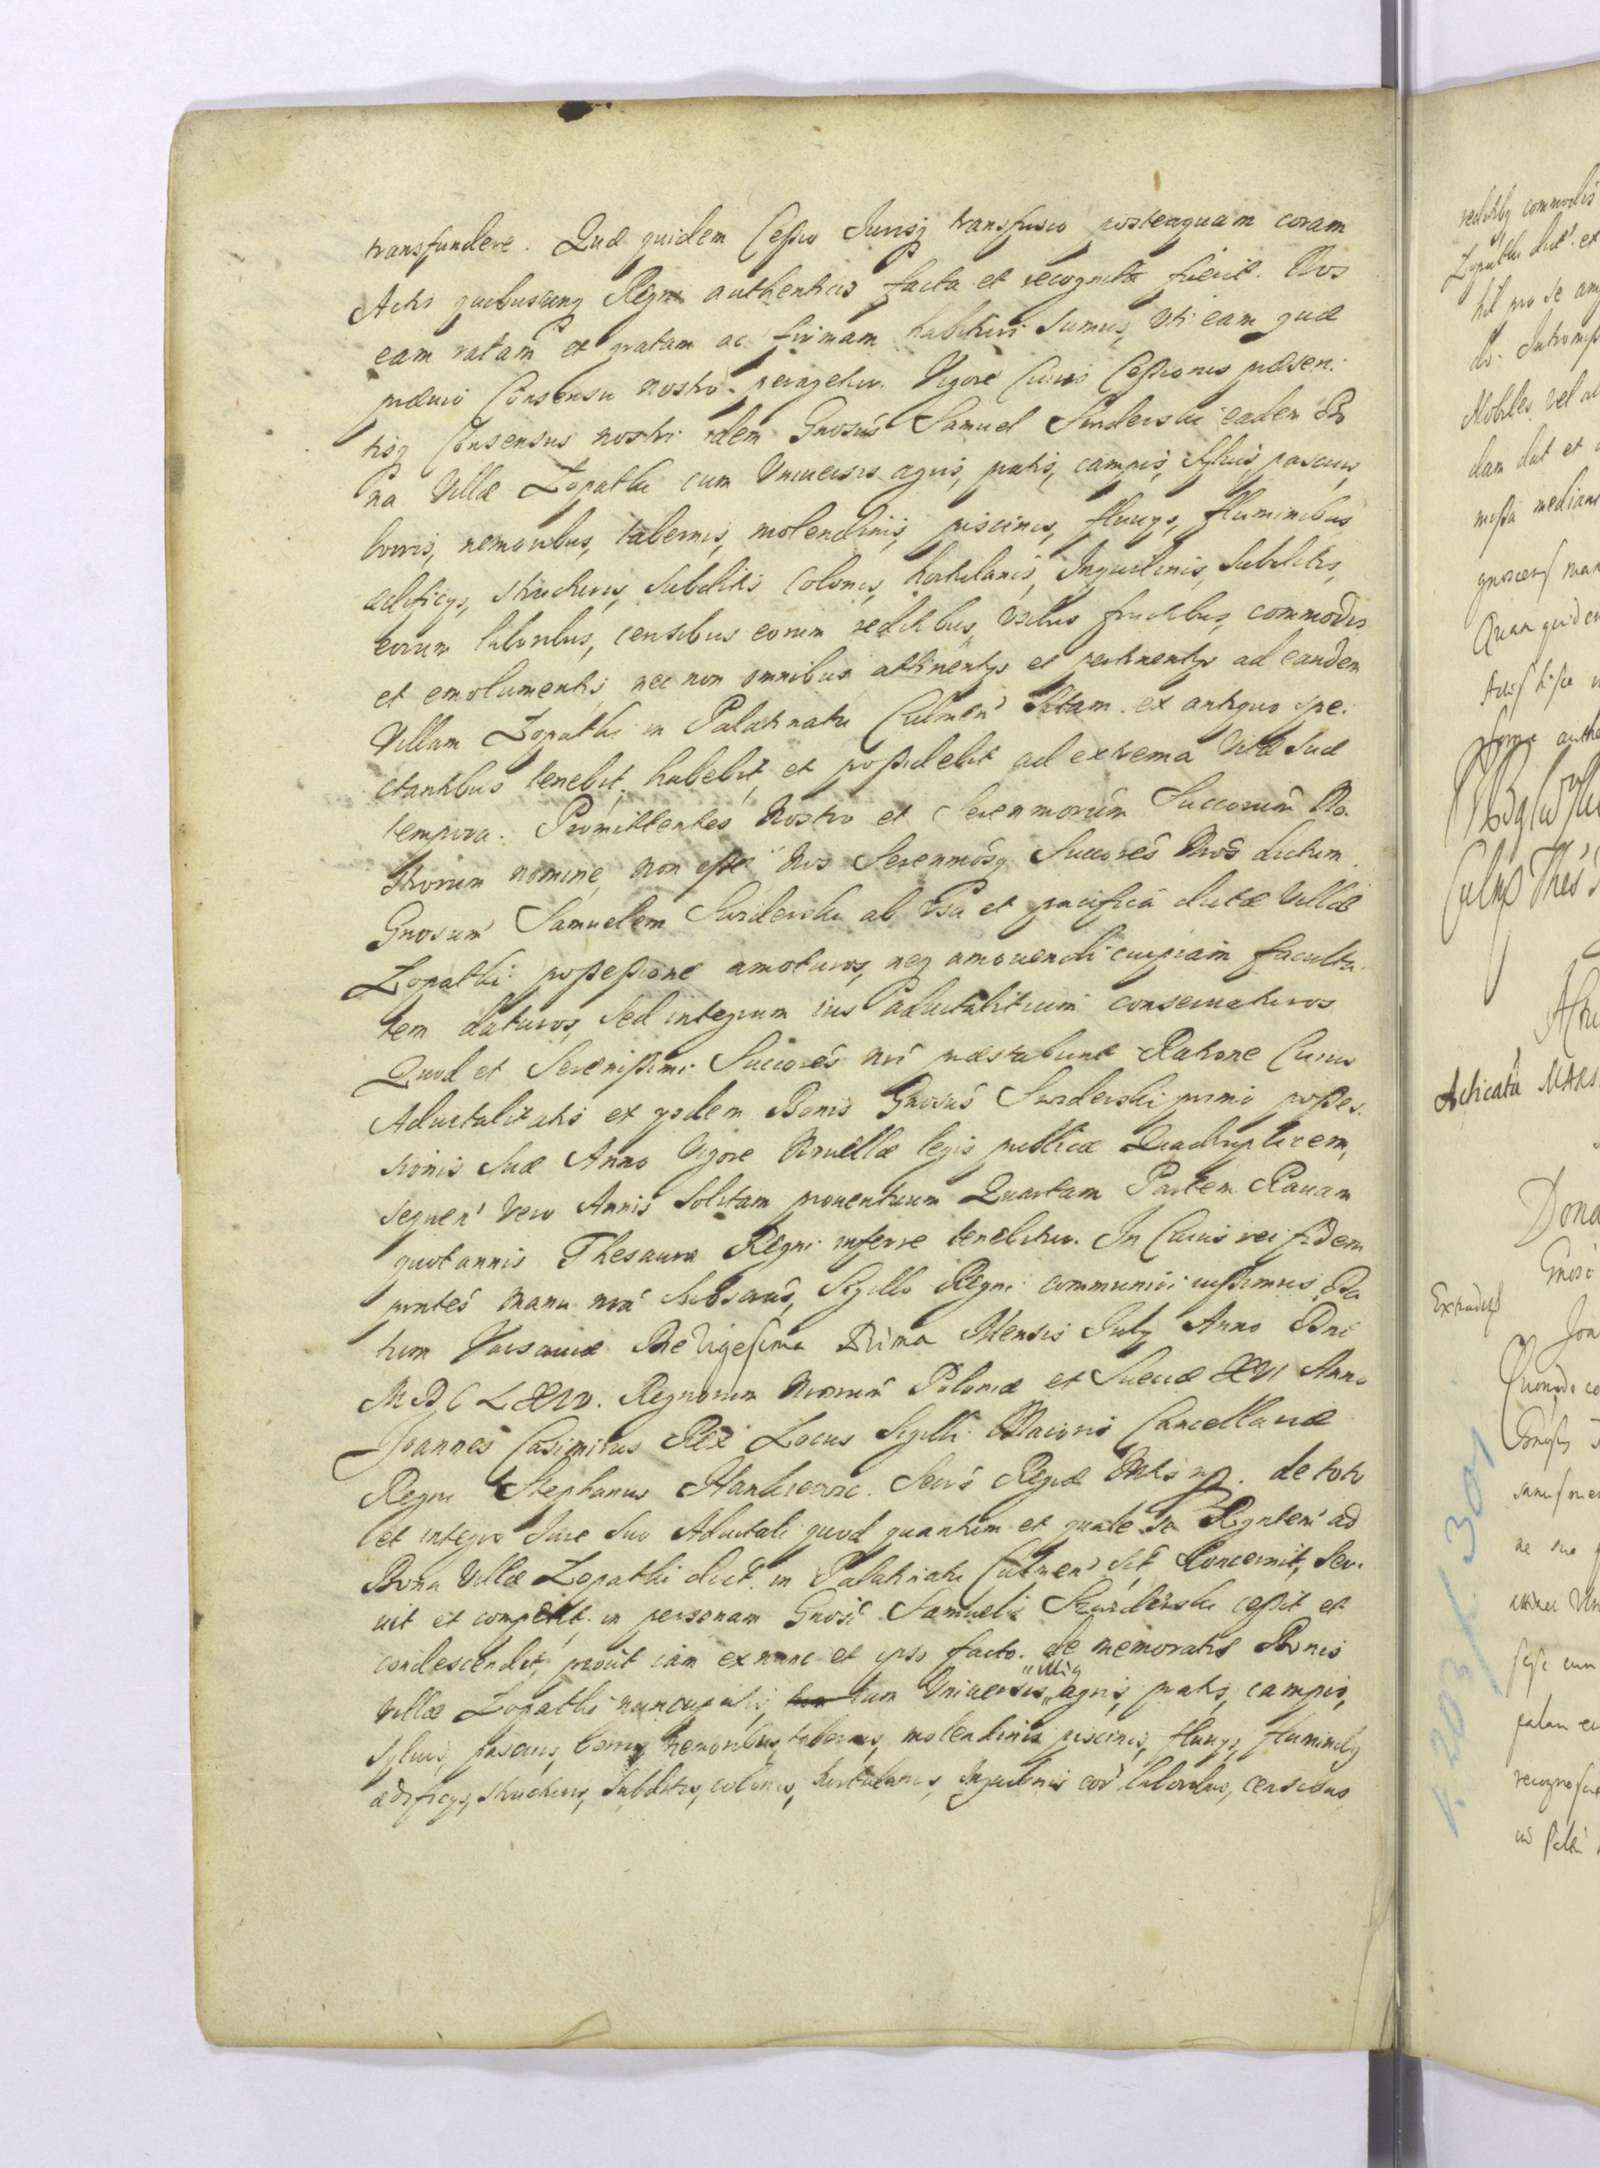 transfundere. Quæ quidem Cessio Jurisq transfusio posteaquam coram
Actis quibuscunq Regni authenticis facta et recognita fuerit. Nos
eam ratam et gratam ac firmam habituri sumus, Uti eam quæ
prævio Consensu nostro peragetur. Vigore Cuius Cessionis præsen-
tisq Consensus nostri idem Gnosus Samuel Swiderski eadem Bo
na Villæ Łopatki cum Universis agris, pratis, campis, sylvis, pascuis,
borris, nemoribus, tabernis, molendinis, piscinis, fluvys, fluminibus
ædificys, structuris, Subditis Colonis, hortulanis, Inquilinis, Subditis,
eorum laboribus, censibus eorum reditibus, usibus fructibus, commodis
et emolumentis, nec non omnibus attinentys et pertinentys ad eandem
Villam Łopatki in Palatinatu Culmen' Sitam ex antiquo spe-
ctantibus tenebit, habebit, et possidebit ad extrema Vitæ suæ
tempora. Promittentes Nostro et Serenmorum Succorum No-
strorum nomine, non esse Nos Serenmosq Succores Nros dictum
Gnosum Samuelem Swiderski ab Usu et pacifica dictæ Villæ
Łopatki possessione amoturos, neq amovendi cuipiam faculta-
tem daturos, Sed integrum ius Advitalitium conservaturos
Quod et Serenissimi Succores nri præstabunt Ratione Cuius
Advitalitatis ex ysdem Bonis Gnosus Swiderski primo posses-
sionis Suæ Anno Vigore Novellæ legis publicæ Quadruplicem,
sequen' vero Annis Solitam proventuum Quartam Partem Ravam
quotannis Thesauro Regni inferre tenebitur. In Cuius rei fidem
pntes manu nra Subscrius, Sigillo Regni communiri iussimus. Da
tum Varsaviæ Die Vigesima Prima Mensis July Anno Dni
Regnorum Nrorum Poloniæ et Sueciæ XVI Anno
Joannes Casimirus Rex Locus Sigilli Maioris Cancellariæ
Regni Stephanus Hankiewic. Secris Regiæ Mtis mp. de toto
et integro Jure Suo Advitali quod quantum et quale se Rgntem ad
Bona Villæ Łopatki dict. in Palatinatu Culmen' Sit Concernit, Ser-
vit et competit, in personam Gnosi Samuelis Swiderski cessit et
condescendit, prout iam ex nunc et ipso facto de memoratis Bonis
Villæ Łopatki nuncupatis, cum Universis illiq agris, pratis, campis,
Sylvis, pascuis, borris, nemoribus, tabernis, molendinis piscinis, fluvys, fluminibq
ædificys, structuris, Subditis, colonis, hortulanis, Inquilinis eor' laboribus, censibus
reditibq commodis
Łopatki dict' et
hil pro se am
do. Intromiss
Nobiles vel
dam dat et
missa median
gnoscens man
Quam quidem
Actis hisce
Adicata MARS
Dona
Extradit
203 / 301